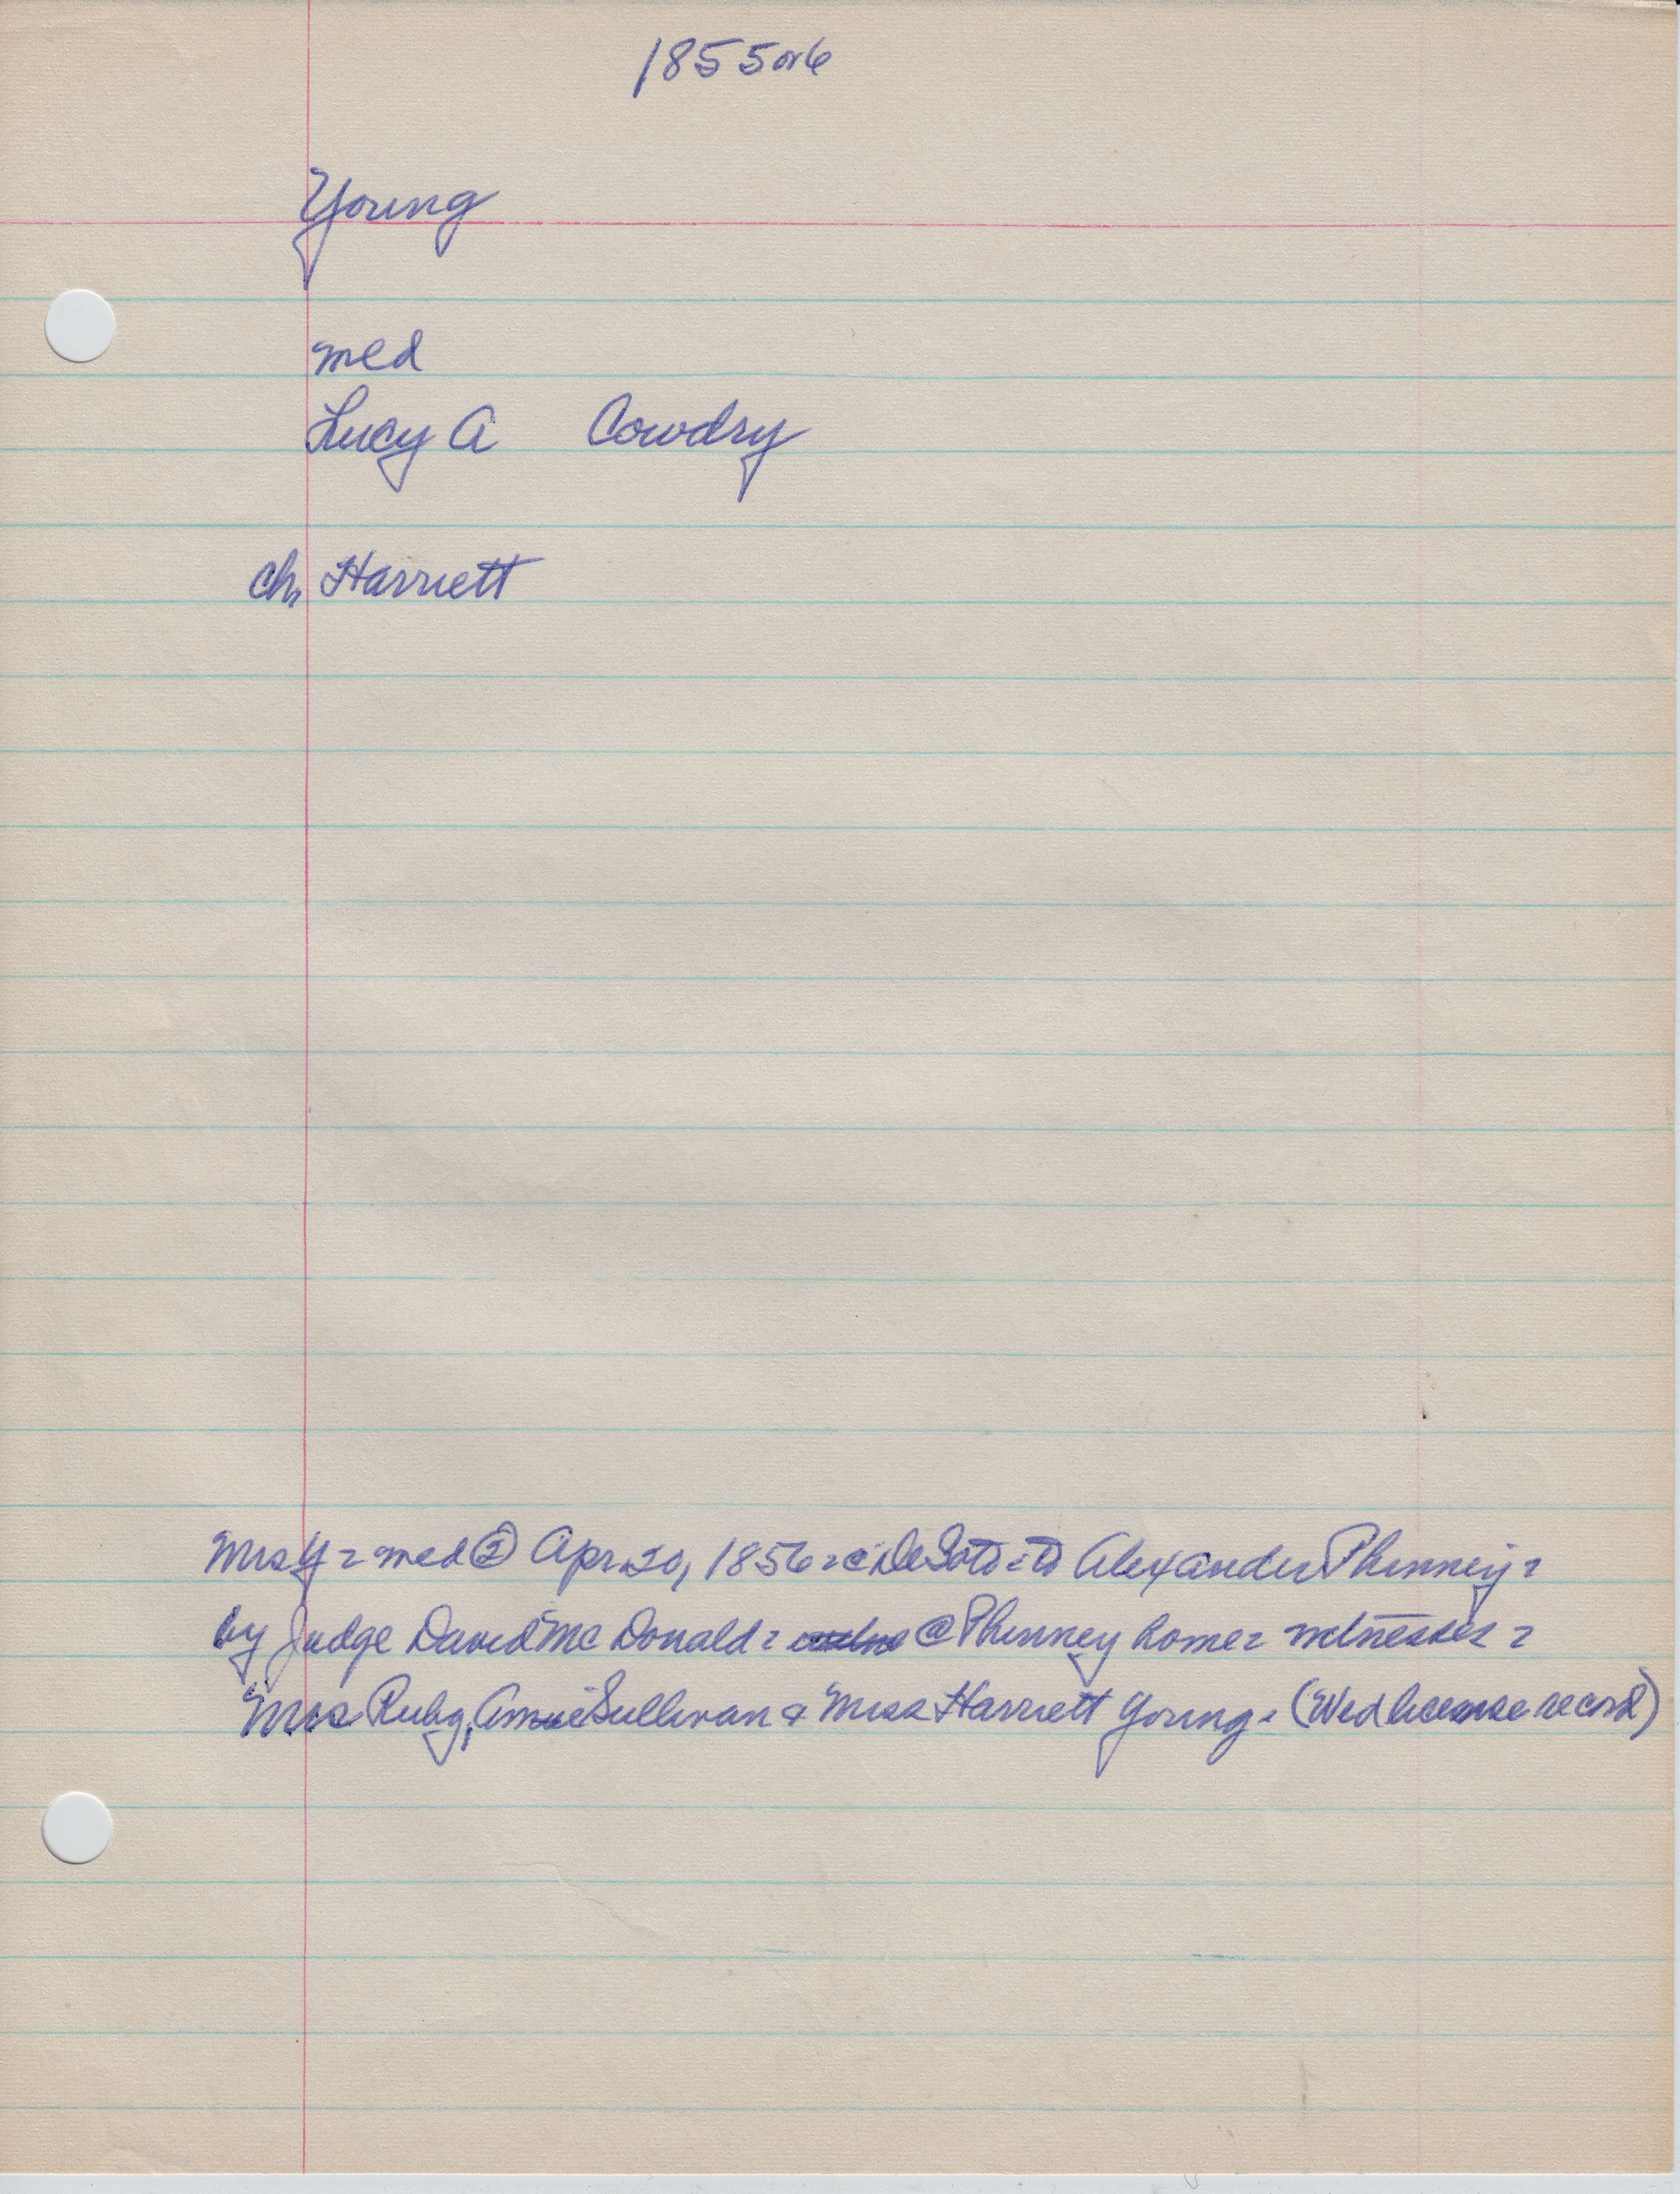 1855 or 6
Young
med
Lucy A Cowdry
ch, Harriett
Mrs Y = med ② Apr 20, 1856 = @ DeSoto = to Alexander Phinney =
by Judge David Mc Donald = @ Phinney home = witnesses =
Mrs Ruby, Annie Sullivan & Miss Harriett Young. (Wed license record)